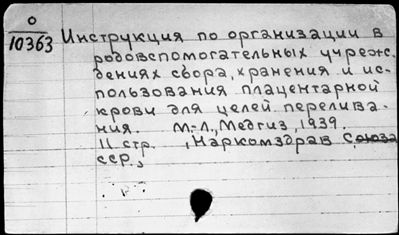 О
10363
Инструкция по организации в
родовспомогательных учреж-
дениях сбора, хранения и ис-
пользования плацентарной
крови для целей перелива-
ния. М.-Л., Медгиз, 1939.
11 стр. (Наркомздрав Союза
ССР.)